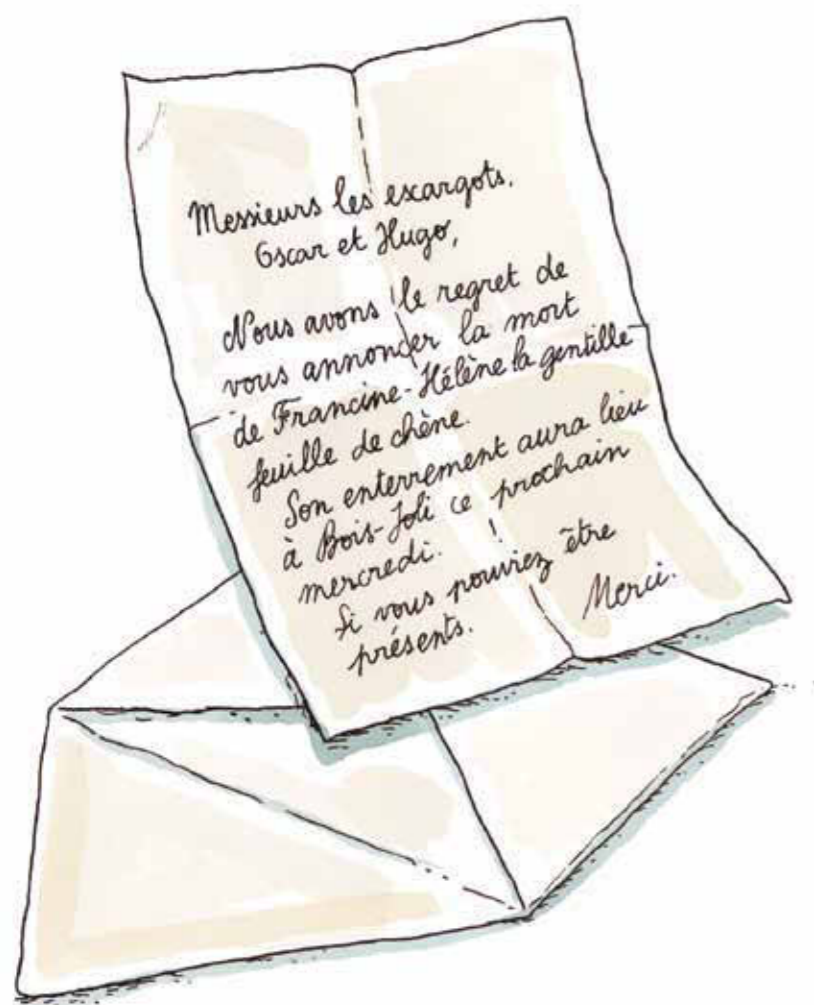 Messieurs les escargots,
Oscar et Hugo,
Nous avons le regret de
vous annoncer la mort
de Francine-Hélène la gentille
feuille de chêne.
Son enterrement aura lieu
à Bois-Joli ce prochain
mercredi.
Si vous pouviez être
présents.
Merci.